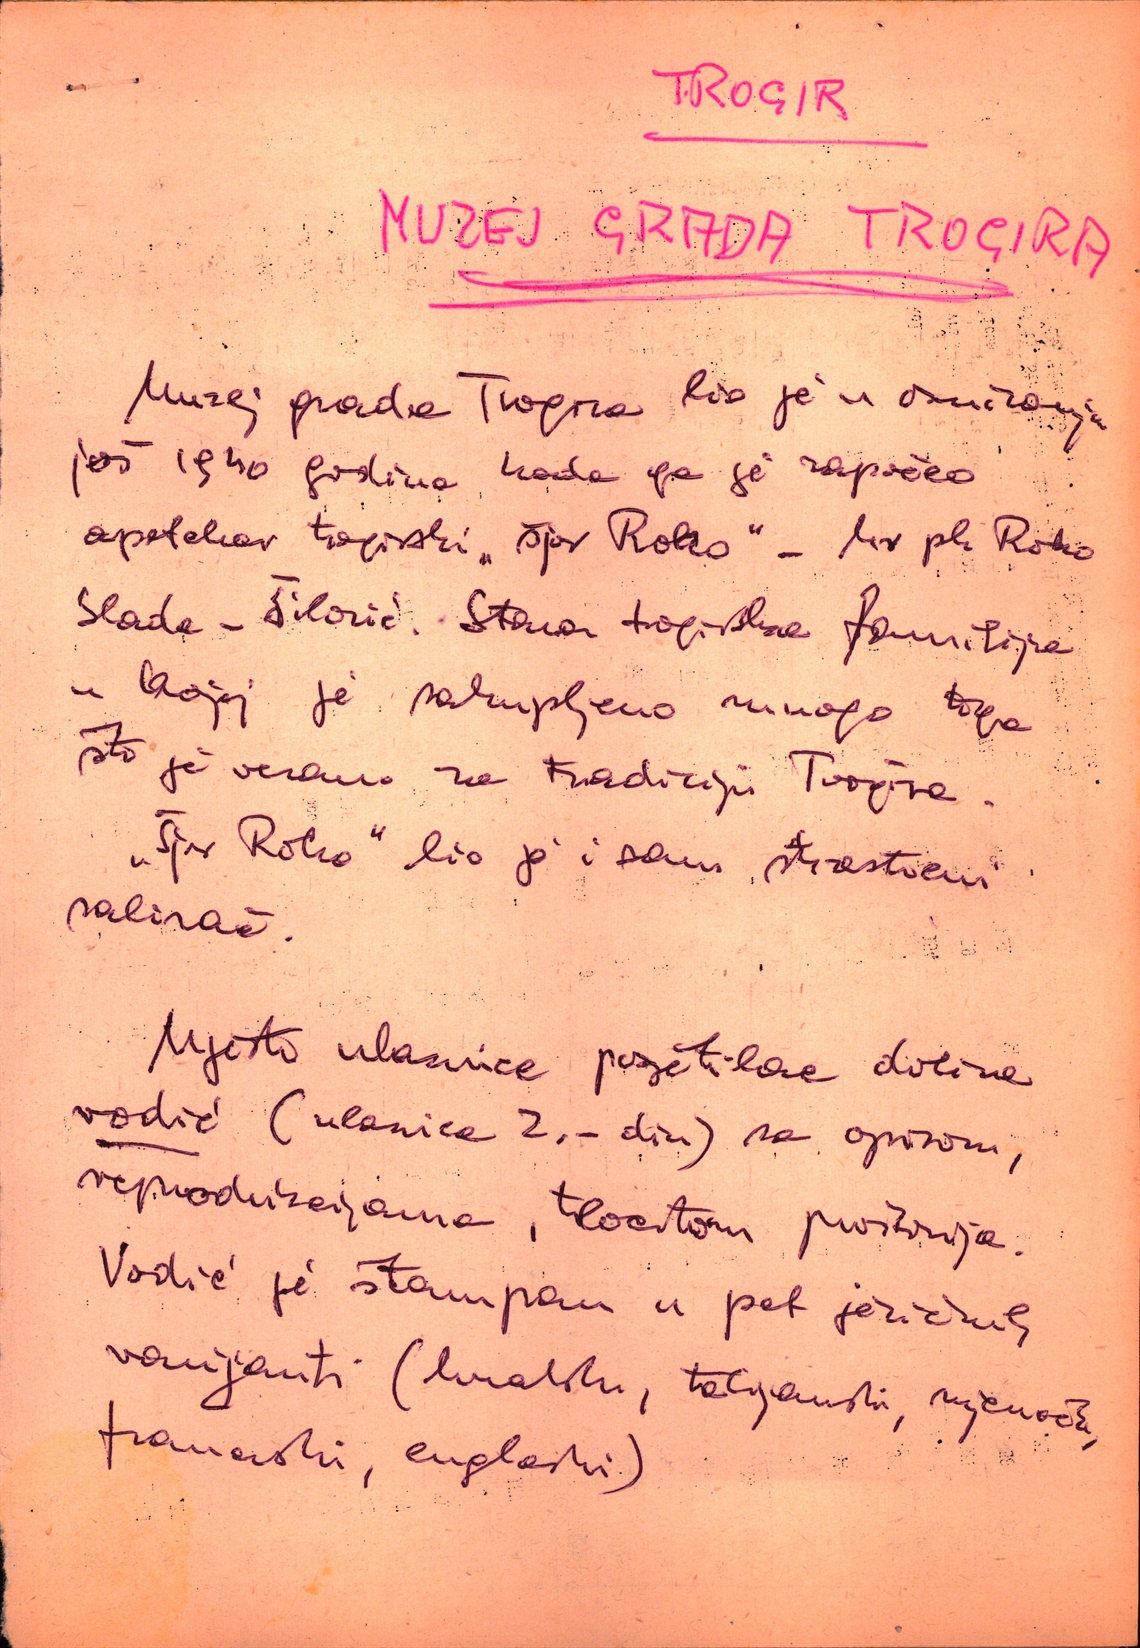 TROGIR
MUZEJ GRADA TROGIRA
Muzej grada Trogira bio je u osnivanju
još 1940 godine kada ga je započeo
apotekar trogirski „Šjor Roko" –
Slade - Šilović. Stara trogirska familija
u kojoj je sakupljeno mnogo toga
što je vezano za tradiciju Trogira.
„Šjor Roko" bio je i sam strastveni
sabirač.
Mjesto ulaznice posjetilac dobiva
vodič (ulaznica 2.- din) sa opisom,
reprodukcijama, tlocrtom prostorija.
Vodič je štampan u pet jezičnih
varijanti (hrvatski, talijanski, njemački,
francuski, engleski)